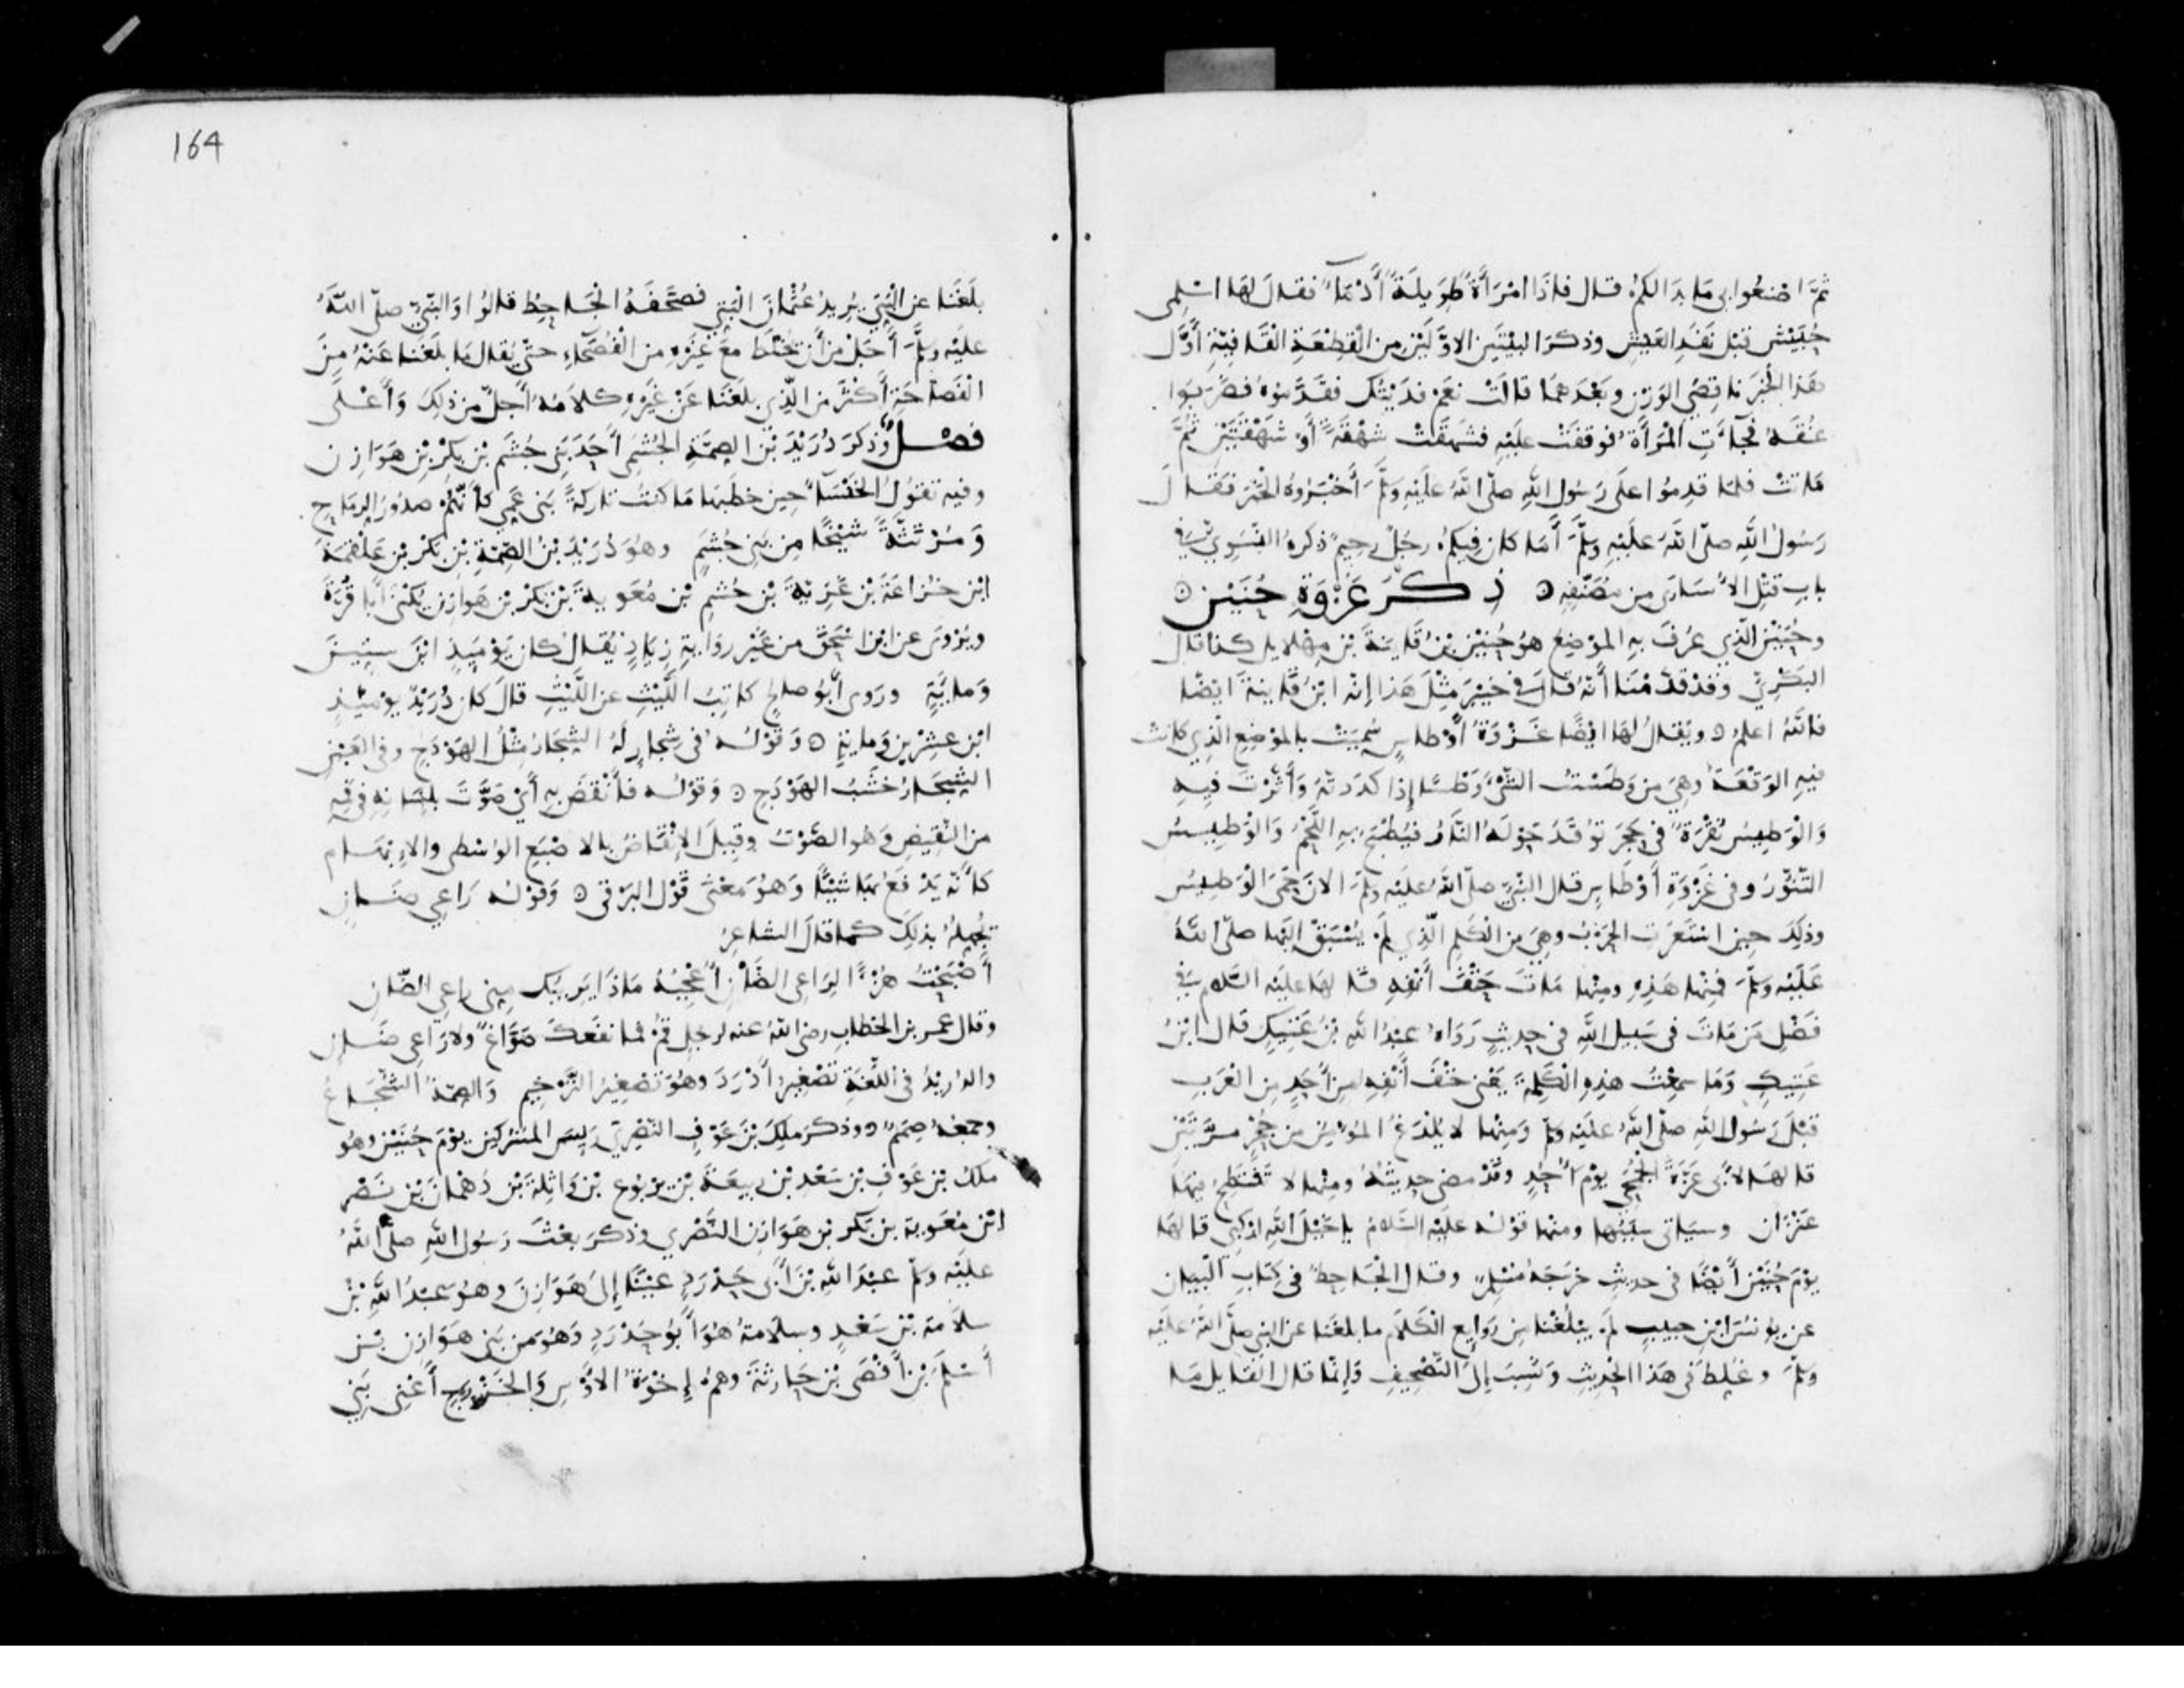 ثمّ اصنعوا بي ما بدا لكم قال فاذا امرأة طويلة أدماء فقال لها اسلمى
حبيش قبل نفد العيش وذكر البيتين الاوّلين من القطعة القافيّة أوّل
هذا الخبر ناقصي الوزن وبعدهما قالت نعم فديتك فقدّموه فضربوا
عنقه فجاءت المرأة فوقفت عليه فشهقت شهقة أو شهقتين ثمّ
ماتت فلما قدموا على رسول الله صلّى الله عليه وسلّم أخبروه الخبر فقال
رسول الله صلّى الله عليه وسلّم أما كان فيكم رجل رحيم ذكره النسوي في
باب قتل الأسارى من مصنّفه ۞ ذكر غزوة حنين ۞
وحنين الذي عرف به الموضع هو حنين بن قاينة بن مهلايل كذا قال
البكريّ وقد قدّمنا أنّه قال في خيبر مثل هذا إنّه ابن قاينة أيضا
فالله اعلم ۞ ويقال لها ايضًا غزوة أوطاس سميت بالموضع الذي كانت
فيه الوقعة وهي من وطست الشئ وطسًا إذا كدرته وأثرت فيه
والوطيس نقرة في حجر توقد حوله النار فيطبخ به اللحم والوطيس
التنّور وفي غزوة أوطاس قال النبيّ صلّى الله عليه وسلم الان حمى الوطيس
وذلك حين استعرت الحرب وهي من الكلم الّذي لم يسبق اليها صلّى الله
عليه وسلّم فمنها هذه ومنها مات حتف أنفه قالها عليه السّلام في
فضل من مات في سبيل الله في حديث رواه عبد الله بن عتيك قال ابن
عتيك وما سمعت هذه الكلمة يعني حتف أنفه من أحد من العرب
قبل رسول الله صلّى الله عليه وسلم ومنها لا يلدغ المؤمن من جحر مرّتين
قالها لأبي عزّة الجمحي يوم أحد وقد مضى حديثه ومنها لا تنتطح فيها
عنزان وسياتي سببها ومنها قوله عليه السّلام يا خيل الله اركبي قالها
يوم حنين أيضًا في حديث خرّجه مسلم وقال الجاحظ في كتاب البيان
عن يونس ابن حبيب لم يبلغنا من روايع الكلام ما بلغنا عن النبي صلّى الله عليه
وسلّم وغلط في هذا الحديث ونسب إلى التّصحيف وانّما قال القايل ما
164
بلغنا عن البتّي يريد عثمان البتي فصحّفه الجاحظ قالوا والنّبيّ صلّى الله
عليه وسلّم أجل من أن يخلط مع غيره من الفصحاء حتّى يقال ما بلغنا عنه من
الفصاحة أكثر من الّذي بلغنا عن غيره كلامه أجلّ من ذلك وأعلى
فصل وذكر دريد بن الصمّة الجشمي أحد بني جشم بن بكر بن هوازن
وفيه تقول الخنساء حين خطبها ما كنت تاركة بني عمي كأنّهم صدور الرماح
ومرتثّة شيخًا من بني جشم وهو دريد بن الصمّة بن بكر بن علقمة
ابن خزاعة بن غزيّة بن جشم بن معوية بن بكر بن هوازن يكنى أبا قرّة
ويروى عن ابن اسحق من غير رواية زياد يقال كان يوميذ ابن ستين
ومايّة وروى أبو صالح كاتب اللّيث عن اللّيث قال كان دريد يومئذ
ابن عشرين وماية ۞ وقوله في شجار له الشجار مثل الهودج وفي العين
الشجار خشب الهودج ۞ وقوله فأنقض به أي صوّت بلسانه في فيه
من النّقيض وهو الصّوت وقيل الإنقاض بالاصبع الوسطى والإبهام
كأنّه يدفع بها شيئًا وهو معنى قول البرقى ۞ وقوله راعي ضان
يجهله بذلك كما قال الشاعر
أصبحت هزءًا لراعي الضّأن أعجبه ماذا يريبك مني راعي الضّان
وقال عمر بن الخطاب رضي الله عنه لرجل قم فما نفعك صوّاغ ولا راعي ضان
والدريد في اللّغة تصغير أدرد وهو تصغير التّرخيم والصّمّة الشّجاع
وجمعه صمم ۞ وذكر ملك بن عوف النّصريّ رييس المشركين يوم حنين وهو
ملك بن عوف بن سعد بن ربيعة بن يربوع بن واثلة بن دهمان بن نصر
ابن معوية بن بكر بن هوازن النّصري وذكر بعث رسول الله صلّى الله
عليه وسلم عبد الله بن أبي حدرد عينًا إلى هوازن وهو عبد الله بن
سلامة بن سعد وسلامة هو أبو حدرد وهو من بني هوازن بن
أسلم بن أفصى بن حارثة وهم إخوة الأوس والخزرج أعني بني